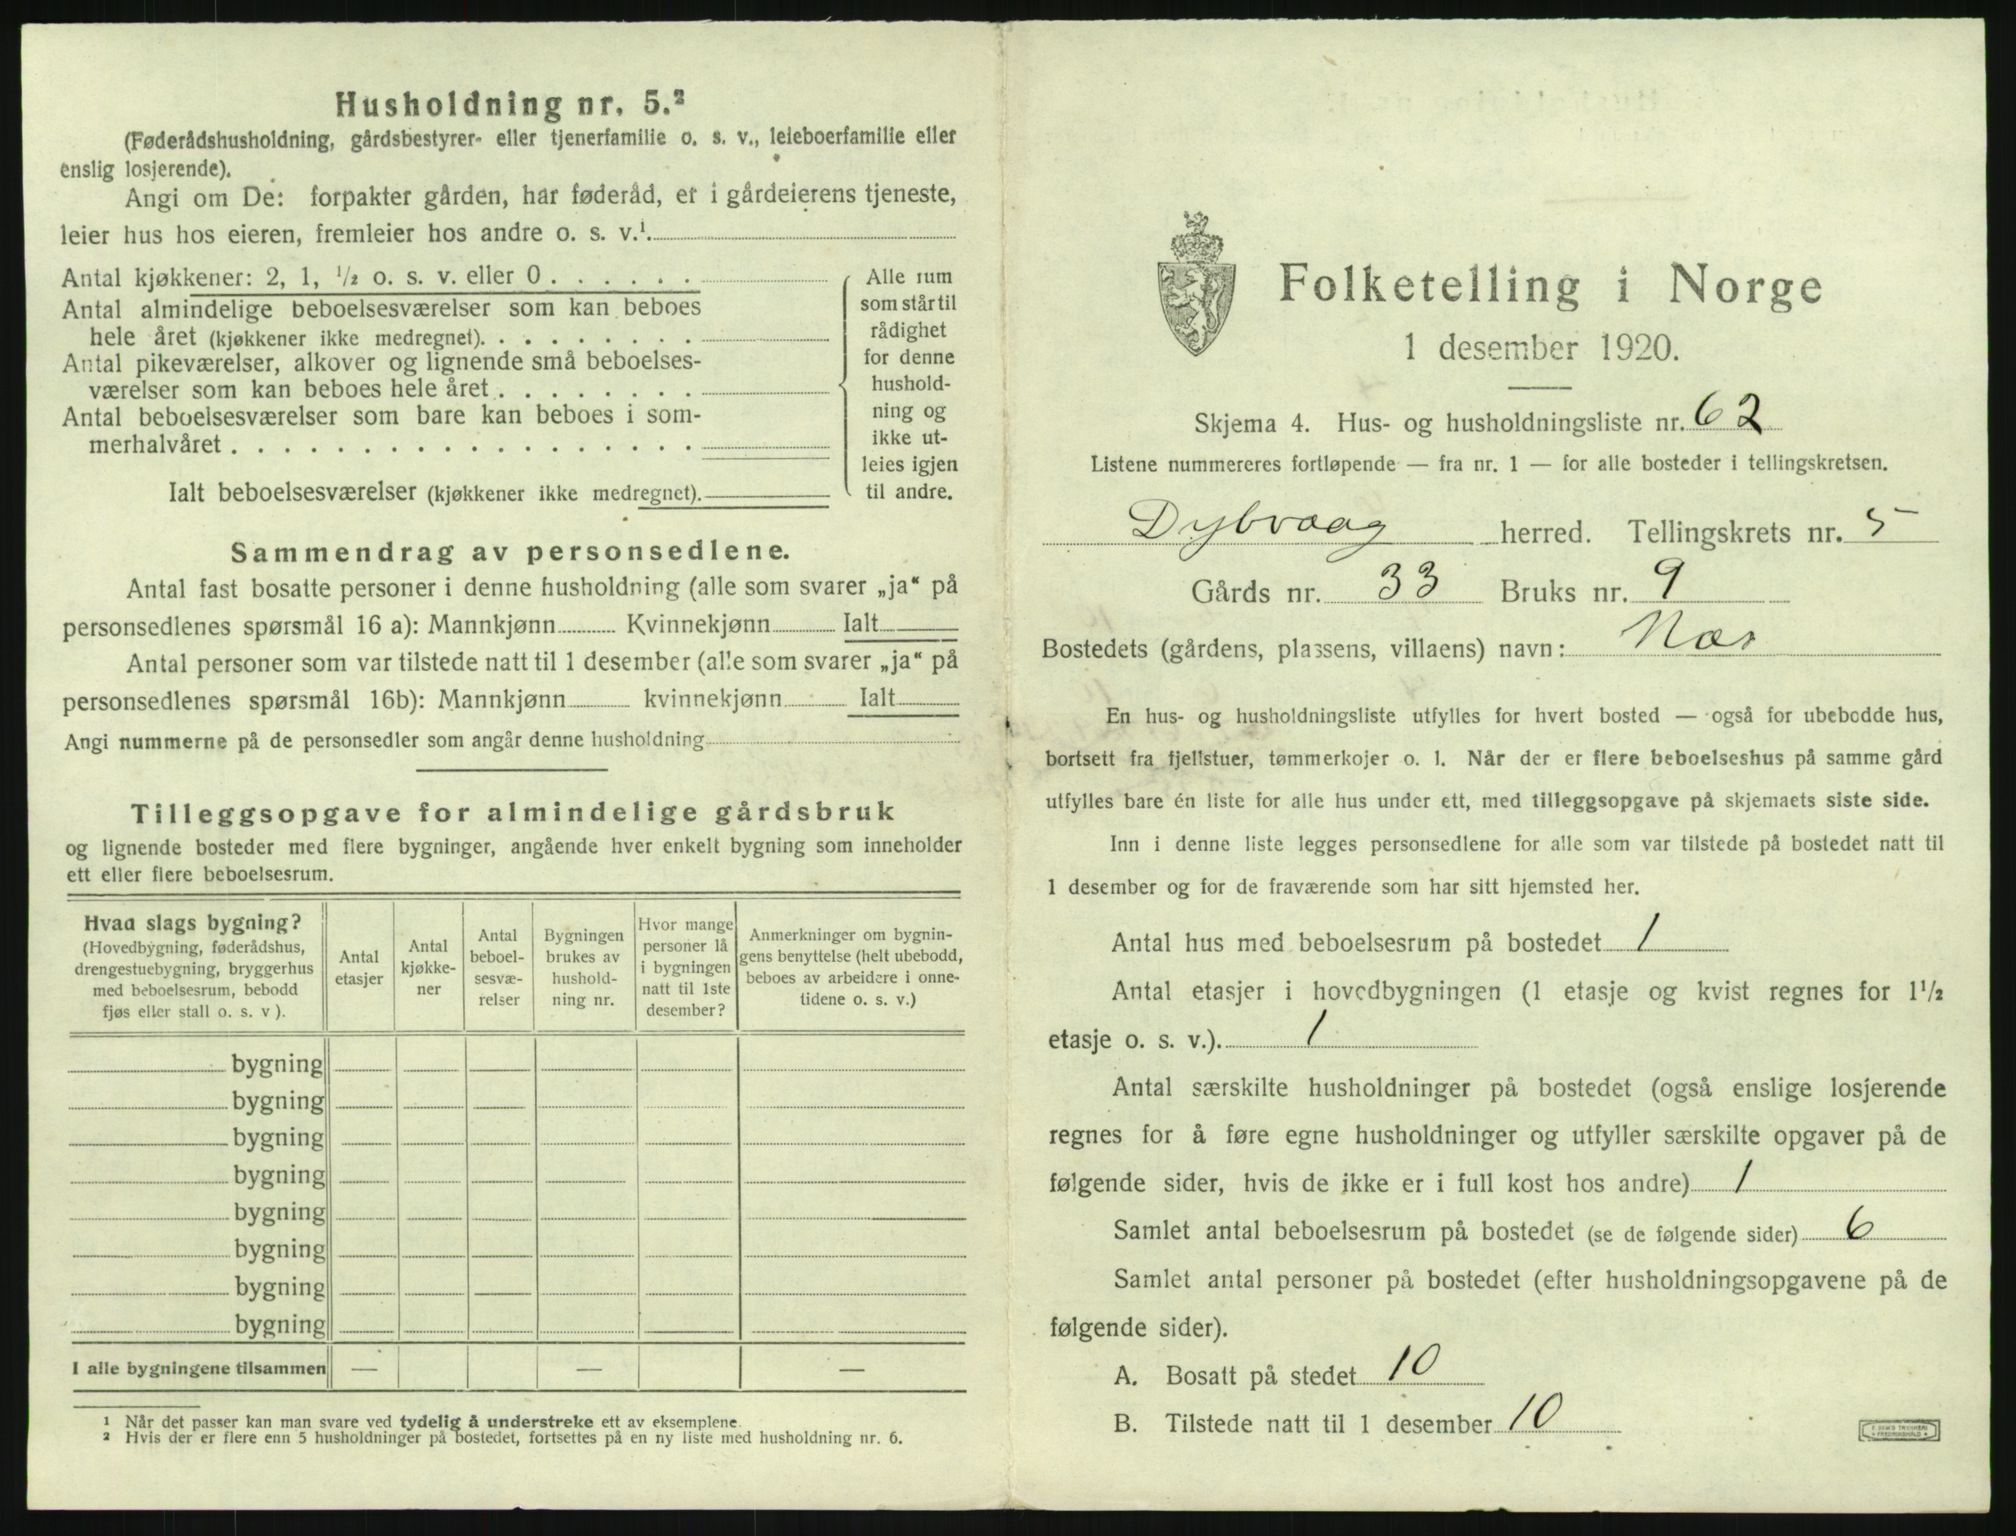 Husholdning nr. 5.²
(Føderådshusholdning, gårdsbestyrer- eller tjenerfamilie o. s. v., leieboerfamilie eller
enslig losjerende).
Angi om De: forpakter gården, har føderåd, er i gårdeierens tjeneste,
leier hus hos eieren, fremleier hos andre o. s. v.¹
Antal kjøkkener: 2, 1, ½ o. s. v. eller 0 . . . . . .
Antal almindelige beboelsesværelser som kan beboes
hele året (kjøkkener ikke medregnet). . . . . . . . .
Antal pikeværelser, alkover og lignende små beboelses-
værelser som kan beboes hele året . . . . . . . .
Antal beboelsesværelser som bare kan beboes i som-
merhalvåret . . . . . . . . . . . . . . . . . .
Ialt beboelsesværelser (kjøkkener ikke medregnet).
Alle rum
som står til
rådighet
for denne
hushold-
ning og
ikke ut-
leies igjen
til andre.
Sammendrag av personsedlene.
Antal fast bosatte personer i denne husholdning (alle som svarer „ja“ på
personsedlenes spørsmål 16 a): Mannkjønn Kvinnekjønn Ialt
Antal personer som var tilstede natt til 1 desember (alle som svarer „ja“ på
personsedlenes spørsmål 16b): Mannkjønn kvinnekjønn Ialt
Angi nummerne på de personsedler som angår denne husholdning
Tilleggsopgave for almindelige gårdsbruk
og lignende bosteder med flere bygninger, angående hver enkelt bygning som inneholder
ett eller flere beboelsesrum.
Hvad slags bygning?
(Hovedbygning, føderådshus,
drengestuebygning, bryggerhus
med beboelsesrum, bebodd
fjøs eller stall o. s. v ).
Antal
etasjer
Antal
kjøkke-
ner
Antal
beboel-
sesvæ-
relser
Bygningen
brukes av
hushold-
ning nr.
Hvor mange
personer lå
i bygningen
natt til 1ste
desember?
Anmerkninger om bygnin-
gens benyttelse (helt ubebodd,
beboes av arbeidere i onne-
tidene o. s. v.)
bygning
bygning
bygning
bygning
bygning
bygning
bygning
bygning
I alle bygningene tilsammen — — —
¹ Når det passer kan man svare ved tydelig å understreke ett av eksemplene.
² Hvis der er flere enn 5 husholdninger på bostedet, fortsettes på en ny liste med husholdning nr. 6.
Folketelling i Norge
1 desember 1920.
Skjema 4. Hus- og husholdningsliste nr. 62
Listene nummereres fortløpende — fra nr. 1 — for alle bosteder i tellingskretsen.
Dybvaag herred. Tellingskrets nr. 5
Gårds nr. 33 Bruks nr. 9
Bostedets (gårdens, plassens, villaens) navn: Næs
En hus- og husholdningsliste utfylles for hvert bosted — også for ubebodde hus,
bortsett fra fjellstuer, tømmerkojer o. l. Når der er flere beboelseshus på samme gård
utfylles bare én liste for alle hus under ett, med tilleggsopgave på skjemaets siste side.
Inn i denne liste legges personsedlene for alle som var tilstede på bostedet natt til
1 desember og for de fraværende som har sitt hjemsted her.
Antal hus med beboelsesrum på bostedet 1
Antal etasjer i hovedbygningen (1 etasje og kvist regnes for 1½
etasje o. s. v.). 1
Antal særskilte husholdninger på bostedet (også enslige losjerende
regnes for å føre egne husholdninger og utfyller særskilte opgaver på de
følgende sider, hvis de ikke er i full kost hos andre) 1
Samlet antal beboelsesrum på bostedet (se de følgende sider) 6
Samlet antal personer på bostedet (efter husholdningsopgavene på de
følgende sider).
A. Bosatt på stedet 10
B. Tilstede natt til 1 desember 10